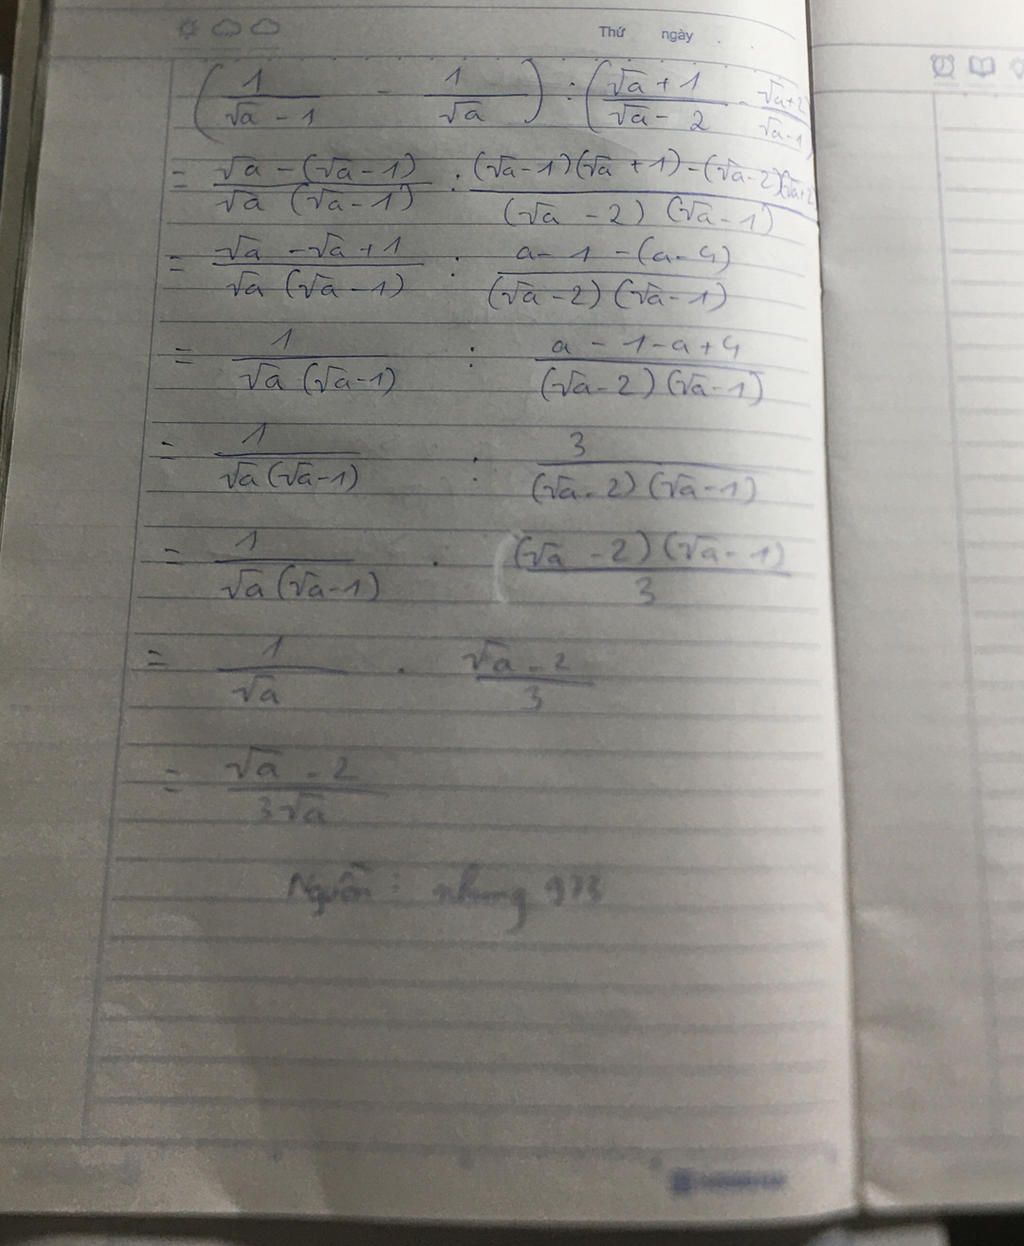 Thứ ngày . .
( 1/(√a - 1) - 1/√a ) : ( (√a + 1)/(√a - 2) - (√a + 2)/(√a - 1) )
= (√a - (√a - 1))/(√a (√a - 1)) : ((√a - 1)(√a + 1) - (√a - 2)(√a + 2))/((√a - 2) (√a - 1))
= (√a - √a + 1)/(√a (√a - 1)) : (a - 1 - (a - 4))/((√a - 2) (√a - 1))
= 1/(√a (√a - 1)) : (a - 1 - a + 4)/((√a - 2) (√a - 1))
= 1/(√a (√a - 1)) : 3/((√a - 2) (√a - 1))
= 1/(√a (√a - 1)) . ((√a - 2) (√a - 1))/3
= 1/√a . (√a - 2)/3
= (√a - 2)/(3√a)
Nguồn : nhung 973